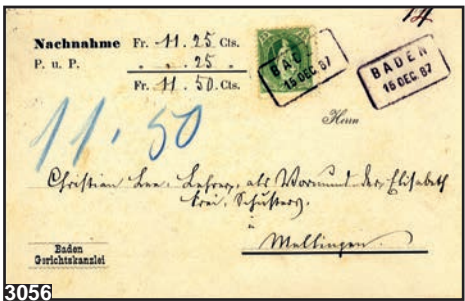 14
Nachnahme Fr. 11. 25 Cts.
P. u. P. „ . 25 „
Fr. 11. 50. Cts.
BADEN
15 DEC. 87
BADEN
16 DEC. 87
11.50
Herrn
Christian Lee, Lehrer, als Vormund der Elisabeth
Frei, Schusters,
in
Mellingen.
Baden
Gerichtskanzlei
3056